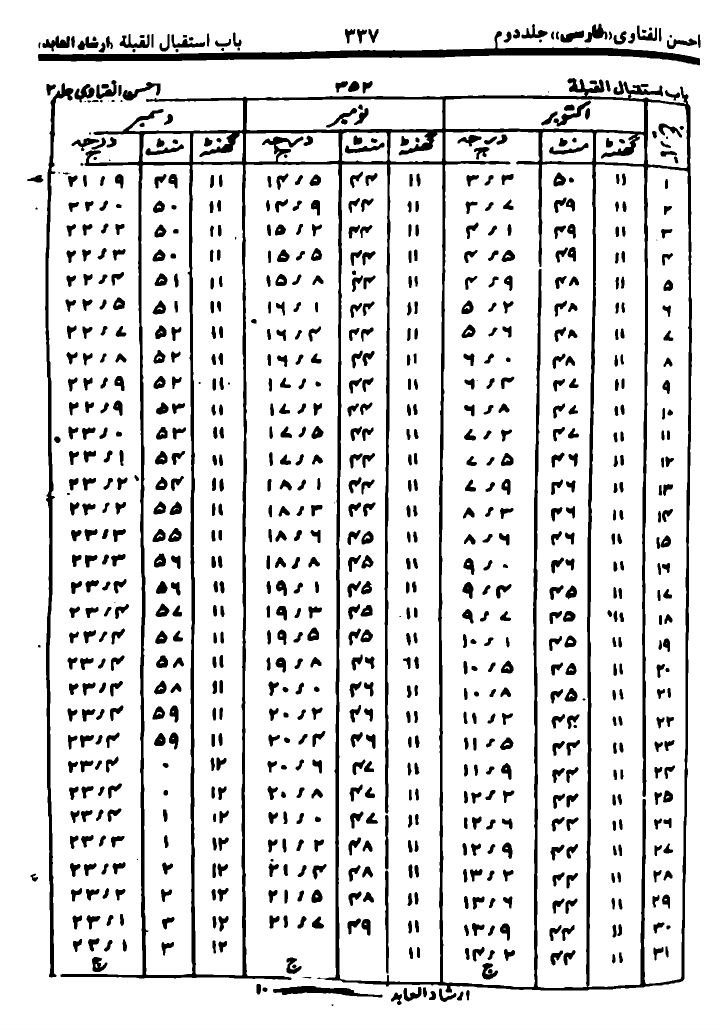 احسن الفتاوی «فارسی» جلد دوم ۳۳۷ باب استقبال القبلة (ارشاد العابد)
باب استقبال القبلة ۳۵۲ احسن الفتاوی جلد ۲
تاریخ اکتوبر نومبر دسمبر
گھنٹہ منٹ درجہ گھنٹہ منٹ درجہ گھنٹہ منٹ درجہ
ج ج ج
۱ ۱۱ ۵۰ ۳٫۳ ۱۱ ۴۴ ۱۴٫۵ ۱۱ ۴۹ ۲۱٫۹
۲ ۱۱ ۴۹ ۳٫۷ ۱۱ ۴۴ ۱۴٫۹ ۱۱ ۵۰ ۲۲٫۰
۳ ۱۱ ۴۹ ۴٫۱ ۱۱ ۴۴ ۱۵٫۲ ۱۱ ۵۰ ۲۲٫۲
۴ ۱۱ ۴۹ ۴٫۵ ۱۱ ۴۴ ۱۵٫۵ ۱۱ ۵۰ ۲۲٫۳
۵ ۱۱ ۴۸ ۴٫۹ ۱۱ ۴۴ ۱۵٫۸ ۱۱ ۵۱ ۲۲٫۴
۶ ۱۱ ۴۸ ۵٫۲ ۱۱ ۴۴ ۱۶٫۱ ۱۱ ۵۱ ۲۲٫۵
۷ ۱۱ ۴۸ ۵٫۶ ۱۱ ۴۴ ۱۶٫۴ ۱۱ ۵۲ ۲۲٫۷
۸ ۱۱ ۴۸ ۶٫۰ ۱۱ ۴۴ ۱۶٫۷ ۱۱ ۵۲ ۲۲٫۸
۹ ۱۱ ۴۷ ۶٫۴ ۱۱ ۴۴ ۱۷٫۰ ۱۱ ۵۲ ۲۲٫۹
۱۰ ۱۱ ۴۷ ۶٫۸ ۱۱ ۴۴ ۱۷٫۲ ۱۱ ۵۳ ۲۲٫۹
۱۱ ۱۱ ۴۷ ۷٫۲ ۱۱ ۴۴ ۱۷٫۵ ۱۱ ۵۳ ۲۳٫۰
۱۲ ۱۱ ۴۶ ۷٫۵ ۱۱ ۴۴ ۱۷٫۸ ۱۱ ۵۴ ۲۳٫۱
۱۳ ۱۱ ۴۶ ۷٫۹ ۱۱ ۴۴ ۱۸٫۱ ۱۱ ۵۴ ۲۳٫۲
۱۴ ۱۱ ۴۶ ۸٫۳ ۱۱ ۴۴ ۱۸٫۳ ۱۱ ۵۵ ۲۳٫۲
۱۵ ۱۱ ۴۶ ۸٫۶ ۱۱ ۴۵ ۱۸٫۶ ۱۱ ۵۵ ۲۳٫۳
۱۶ ۱۱ ۴۶ ۹٫۰ ۱۱ ۴۵ ۱۸٫۸ ۱۱ ۵۶ ۲۳٫۳
۱۷ ۱۱ ۴۵ ۹٫۴ ۱۱ ۴۵ ۱۹٫۱ ۱۱ ۵۶ ۲۳٫۴
۱۸ ۱۱ ۴۵ ۹٫۷ ۱۱ ۴۵ ۱۹٫۳ ۱۱ ۵۷ ۲۳٫۴
۱۹ ۱۱ ۴۵ ۱۰٫۱ ۱۱ ۴۵ ۱۹٫۵ ۱۱ ۵۷ ۲۳٫۴
۲۰ ۱۱ ۴۵ ۱۰٫۵ ۱۱ ۴۶ ۱۹٫۸ ۱۱ ۵۸ ۲۳٫۴
۲۱ ۱۱ ۴۵ ۱۰٫۸ ۱۱ ۴۶ ۲۰٫۰ ۱۱ ۵۸ ۲۳٫۴
۲۲ ۱۱ ۴۴ ۱۱٫۲ ۱۱ ۴۶ ۲۰٫۲ ۱۱ ۵۹ ۲۳٫۴
۲۳ ۱۱ ۴۴ ۱۱٫۵ ۱۱ ۴۶ ۲۰٫۴ ۱۱ ۵۹ ۲۳٫۴
۲۴ ۱۱ ۴۴ ۱۱٫۹ ۱۱ ۴۷ ۲۰٫۶ ۱۲ ۰ ۲۳٫۴
۲۵ ۱۱ ۴۴ ۱۲٫۲ ۱۱ ۴۷ ۲۰٫۸ ۱۲ ۰ ۲۳٫۴
۲۶ ۱۱ ۴۴ ۱۲٫۶ ۱۱ ۴۷ ۲۱٫۰ ۱۲ ۱ ۲۳٫۴
۲۷ ۱۱ ۴۴ ۱۲٫۹ ۱۱ ۴۸ ۲۱٫۲ ۱۲ ۱ ۲۳٫۳
۲۸ ۱۱ ۴۴ ۱۳٫۲ ۱۱ ۴۸ ۲۱٫۴ ۱۲ ۲ ۲۳٫۳
۲۹ ۱۱ ۴۴ ۱۳٫۶ ۱۱ ۴۸ ۲۱٫۵ ۱۲ ۲ ۲۳٫۲
۳۰ ۱۱ ۴۴ ۱۳٫۹ ۱۱ ۴۹ ۲۱٫۷ ۱۲ ۳ ۲۳٫۱
۳۱ ۱۱ ۴۴ ۱۴٫۲ ۱۱ ۱۲ ۳ ۲۳٫۱
ج ج ج
ارشاد العابد ۱۰